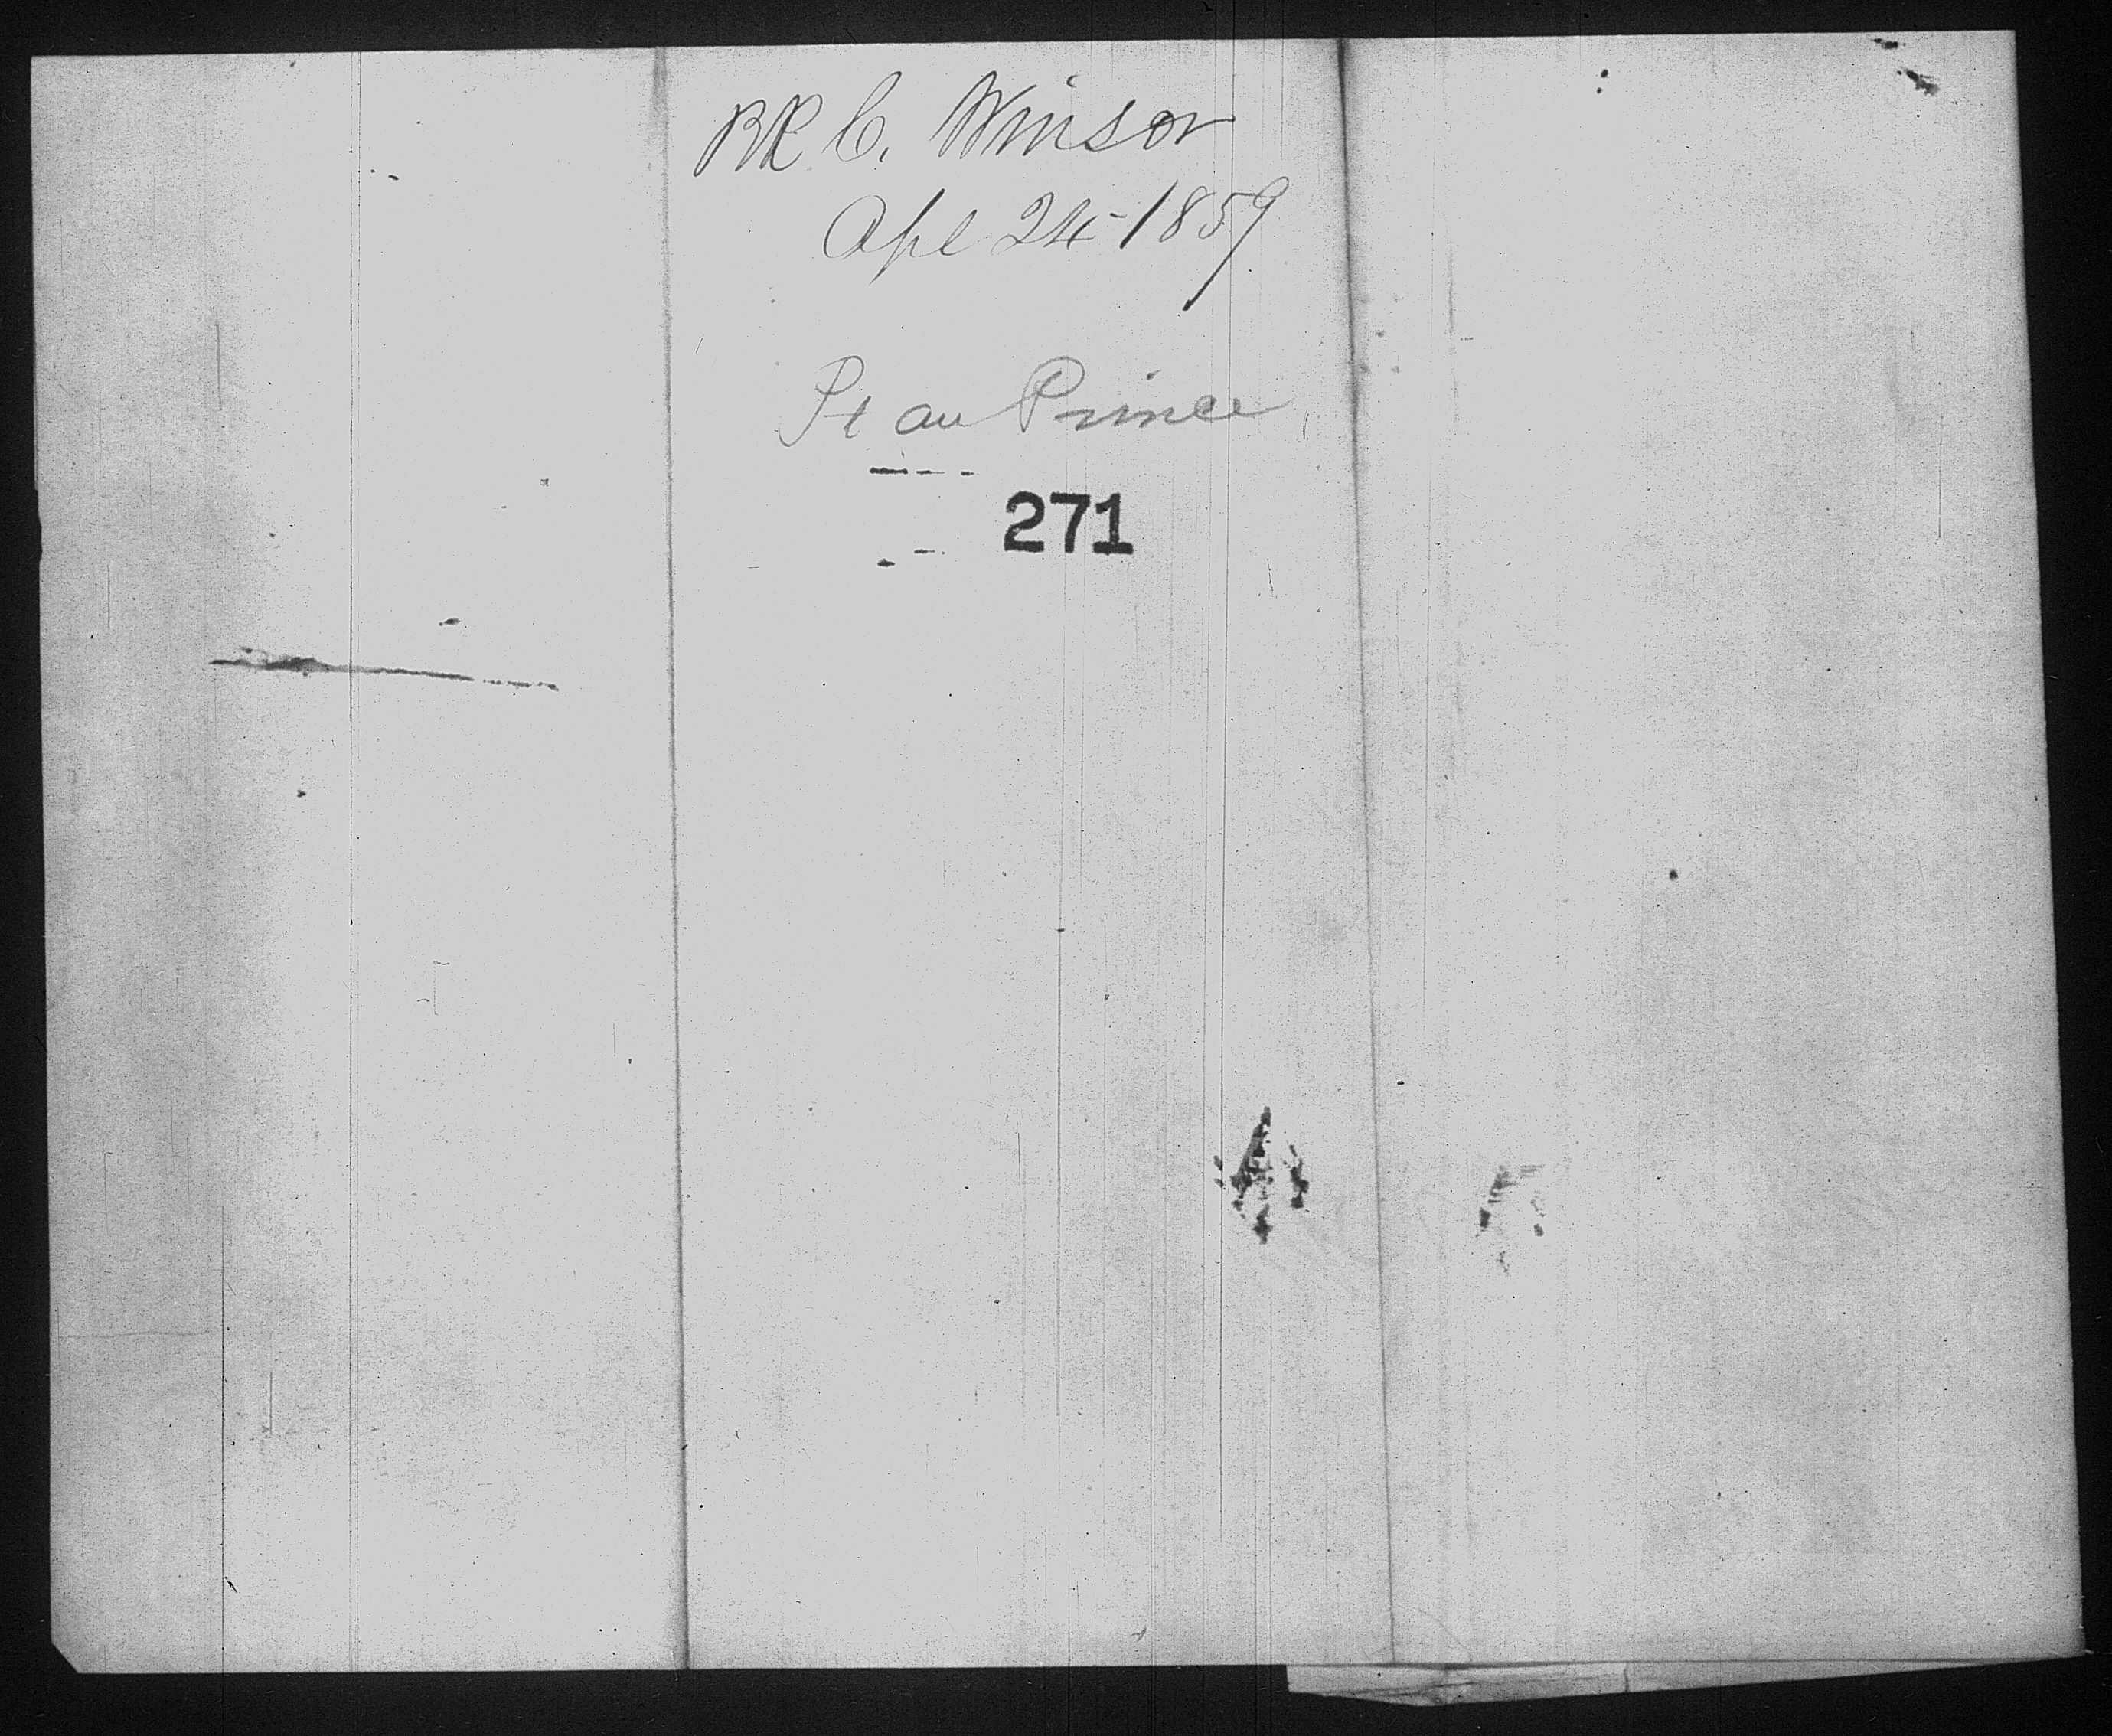 BK C. Winsor
Apl 24-1859
Pt au Prince
271